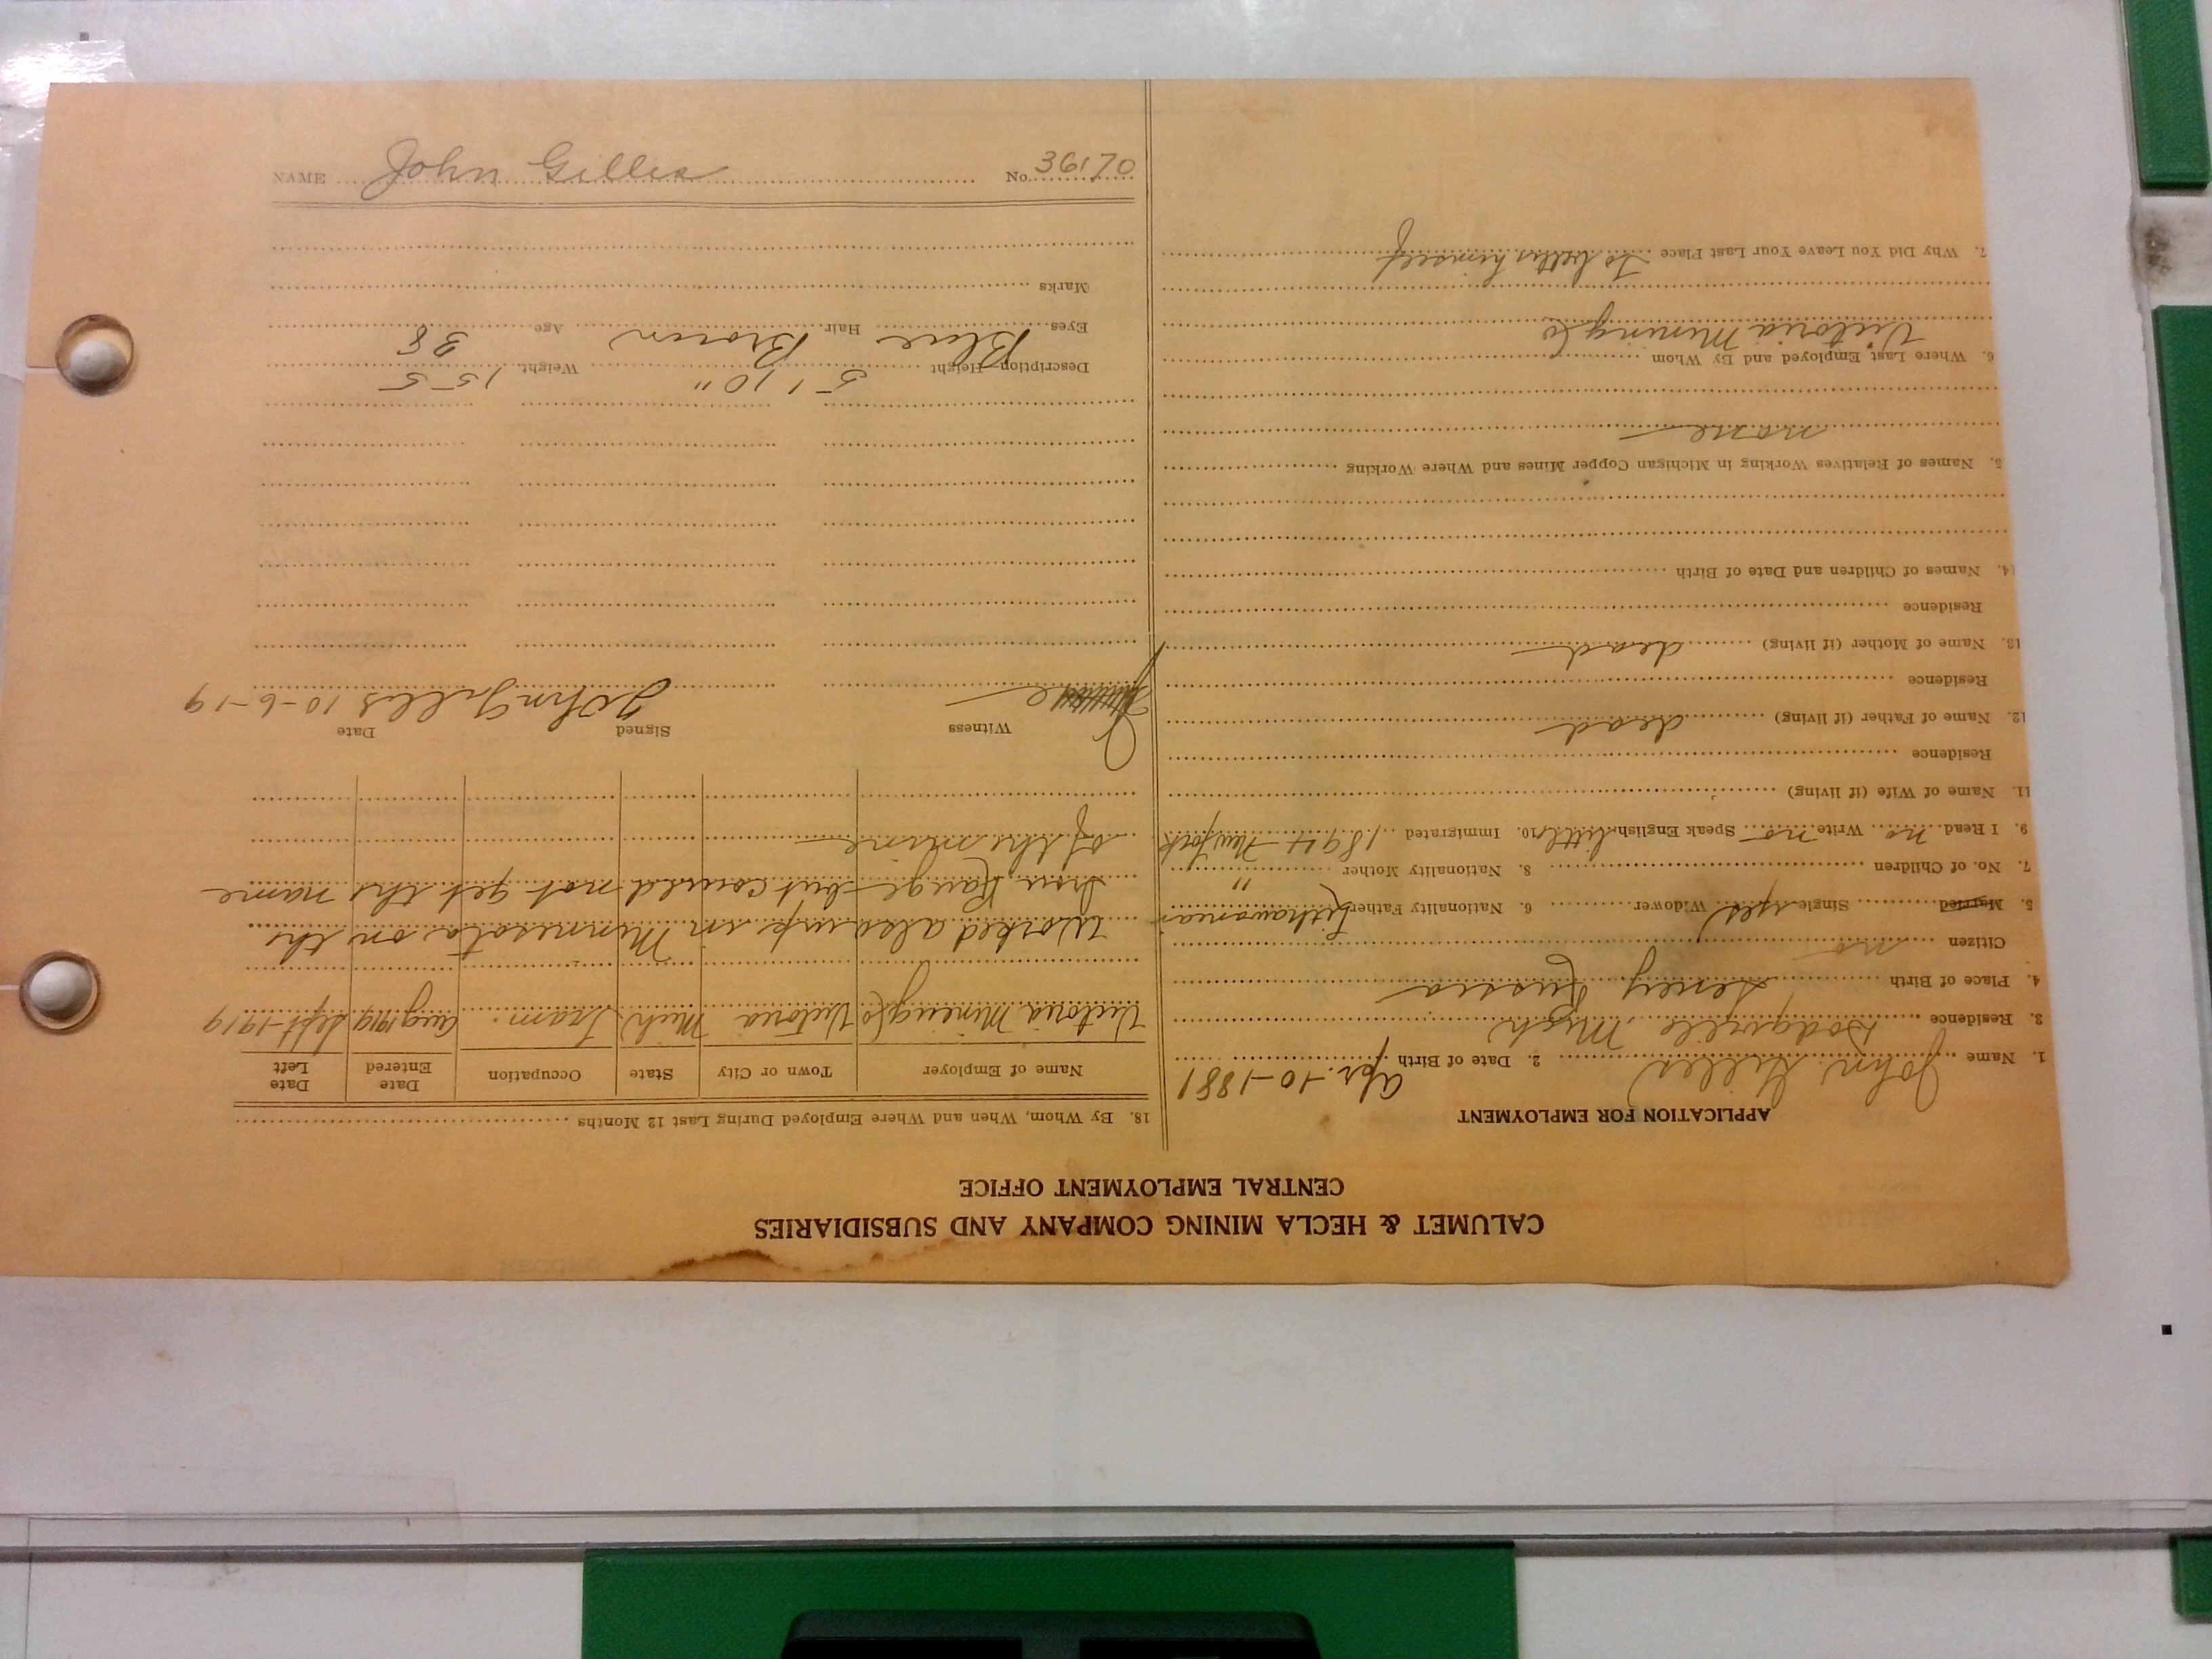 CALUMET & HECLA MINING COMPANY AND SUBSIDIARIES
CENTRAL EMPLOYMENT OFFICE
APPLICATION FOR EMPLOYMENT
1. Name John Gilles 2. Date of Birth Apr. 10-1881
3. Residence Dodgville Mich
4. Place of Birth Russia
Citizen no
5. Married Single yes Widower 6. Nationality Father Lithawanian
7. No. of Children 8. Nationality Mother "
9. I Read no Write no Speak English little 10. Immigrated 1894 New York
11. Name of Wife (if living)
Residence
12. Name of Father (if living) dead
Residence
13. Name of Mother (if living) dead
Residence
14. Names of Children and Date of Birth
5. Names of Relatives Working in Michigan Copper Mines and Where Working
none
6. Where Last Employed and By Whom
Victoria Mining Co
7. Why Did You Leave Your Last Place To better himself
18. By Whom, When and Where Employed During Last 12 Months
Name of Employer Town or City State Occupation Date Entered Date Left
Victoria Mining Co Victoria Mich Tram. Aug 1919 Sept-1919
Worked also up in Minnesota on the
Iron Range but could not get the name
of the mine
Witness Signed Date
John Gilles 10-6-19
Description—Height 5' 10" Weight 155
Eyes Blue Hair Brown Age 38
Marks
NAME John Gilles No. 36170